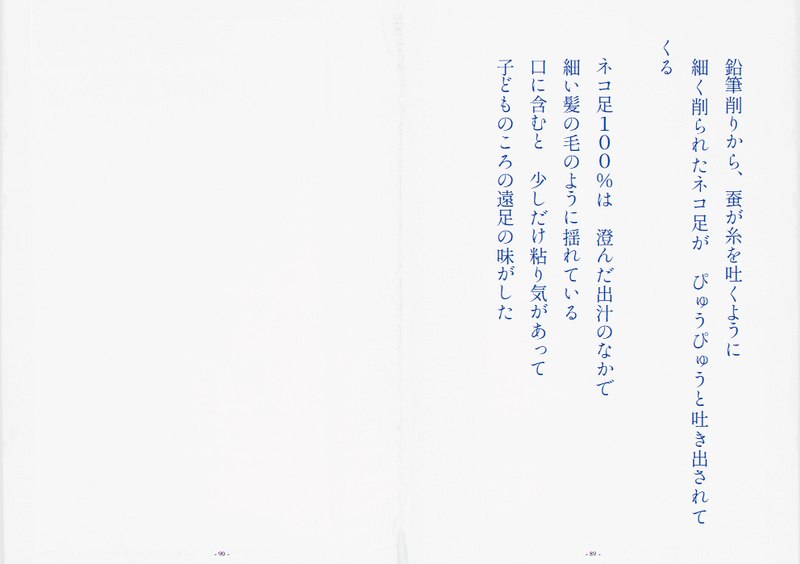 鉛筆削りから、蚕が糸を吐くように
細く削られたネコ足が　ぴゅうぴゅうと吐き出されて
くる
ネコ足１００％は　澄んだ出汁のなかで
細い髪の毛のように揺れている
口に含むと　少しだけ粘り気があって
子どものころの遠足の味がした
- 89 -
- 90 -